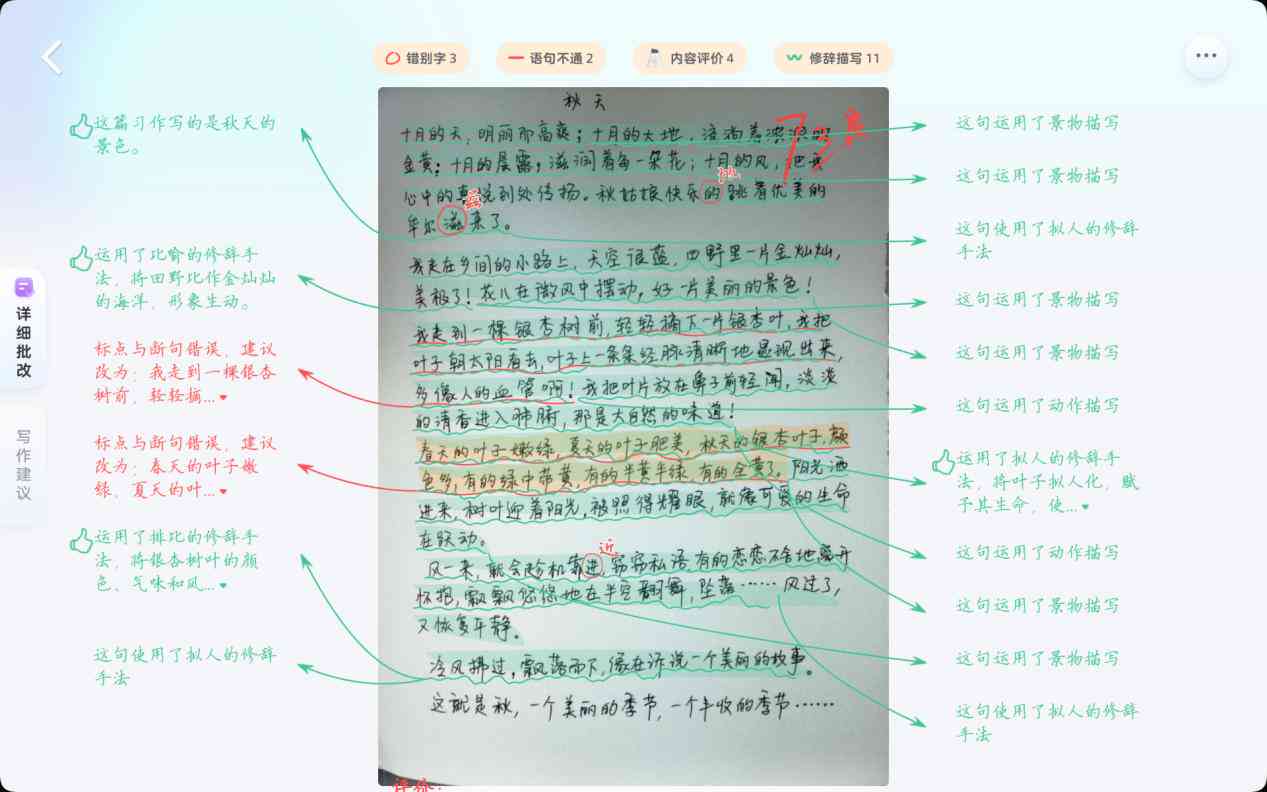 错别字 3
语句不通 2
内容评价 4
修辞描写 11
详细批改
写作建议
这篇习作写的是秋天的
景色。
运用了比喻的修辞手
法，将田野比作金灿灿
的海洋，形象生动。
标点与断句错误，建议
改为：我走到一棵银杏
树前，轻轻摘...
标点与断句错误，建议
改为：春天的叶子嫩
绿，夏天的叶...
运用了排比的修辞手
法，将银杏树叶的颜
色、气味和风...
这句使用了拟人的修辞
手法
秋天
73
十月的天，明丽而高爽；十月的大地，流淌着浓浓的
金黄；十月的晨露，滋润着每一朵花；十月的风，把我
心中的喜悦到处传扬。秋姑娘快乐的跳着优美的
地
芭
华尔滋来了。
我走在乡间的小路上，天空很蓝，四野里一片金灿灿，
美极了！花儿在微风中摆动，好一片美丽的景色！
我走到一棵银杏树前，轻轻摘下一片银杏叶，我把
叶子朝太阳看去，叶子上一条条经脉清晰地显现出来，
多像人的血管啊！我把叶片放在鼻子前轻闻，淡淡
的清香进入肺腑，那是大自然的味道！
春天的叶子嫩绿，夏天的叶子肥美，秋天的银杏叶子，颜
色多，有的绿中带黄，有的半黄半绿，有的全黄了。阳光洒
进来，树叶迎着阳光，被照得耀眼，就像可爱的生命
在跃动。
近
风一来，就会趁机靠进，窃窃私语，有的恋恋不舍地离开
怀抱，飘飘悠悠地在半空翻舞，坠落……风过了，
又恢复平静。
冷风拂过，飘落而下，像在诉说一个美丽的故事。
这就是秋，一个美丽的季节，一个丰收的季节……
这句运用了景物描写
这句运用了景物描写
这句使用了拟人的修辞
手法
这句运用了景物描写
这句运用了景物描写
这句运用了动作描写
运用了拟人的修辞手
法，将叶子拟人化，赋
予其生命，使...
这句运用了动作描写
这句运用了景物描写
这句运用了景物描写
这句使用了拟人的修辞
手法